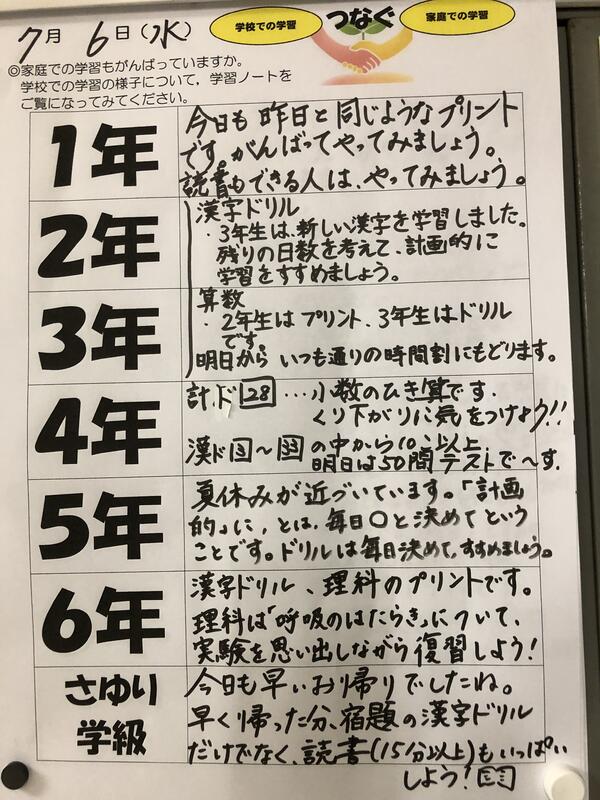 7月 6日(水)
学校での学習 つなぐ 家庭での学習
◎家庭での学習もがんばっていますか。
学校での学習の様子について，学習ノートを
ご覧になってみてください。
1年
今日も昨日と同じようなプリント
です。がんばってやってみましょう。
読書もできる人は、やってみましょう。
2年
3年
漢字ドリル
・3年生は、新しい漢字を学習しました。
残りの日数を考えて、計画的に
学習をすすめましょう。
算数
・2年生はプリント、3年生はドリル
です。
明日から いつも通りの時間割にもどります。
4年
計ド28…小数のひき算です．
くり下がりに気をつけよう!!
漢ド
～
の中から10こ以上
明日は50問テストで〜す.
5年
夏休みが近づいています。「計画
的」に，とは、毎日〇と決めてという
ことです。ドリルは毎日決めて、すすめましょう。
6年
漢字ドリル、理科のプリントです。
理科は「呼吸のはたらき」について、
実験を思い出しながら復習しよう！
さゆり
学級
今日も早いお帰りでしたね。
早く帰った分、宿題の漢字ドリル
だけでなく、読書(15分以上)もいっぱい
しよう！